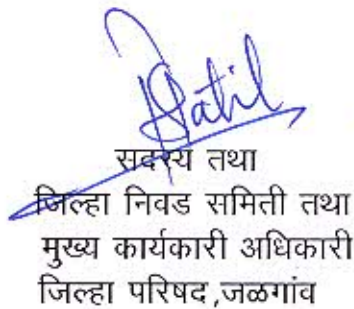 Patil
सदस्य तथा
जिल्हा निवड समिती तथा
मुख्य कार्यकारी अधिकारी
जिल्हा परिषद,जळगांव